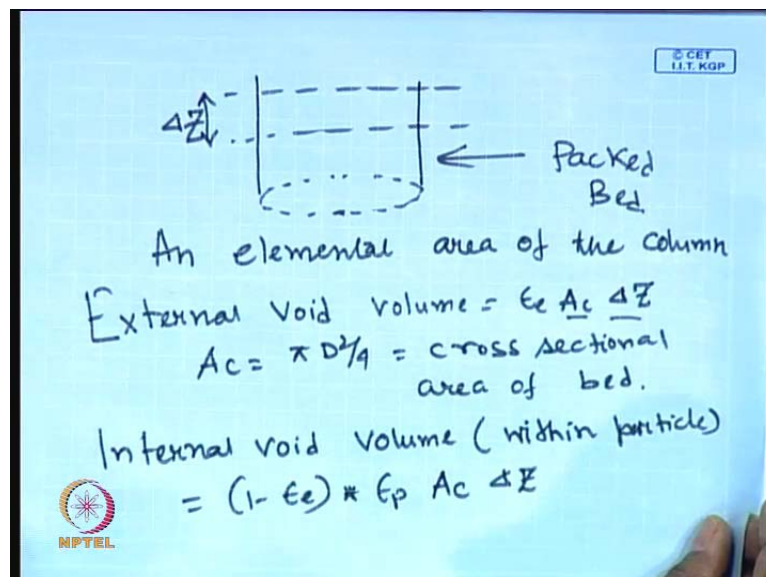 © CET
I.I.T. KGP
ΔZ
Packed
Bed
An elemental area of the column
External void volume = Ɛe Ac ΔZ
Ac = π D²/4 = cross sectional
area of bed.
Internal void volume (within particle)
= (1- Ɛe) * Ɛp Ac ΔZ
NPTEL